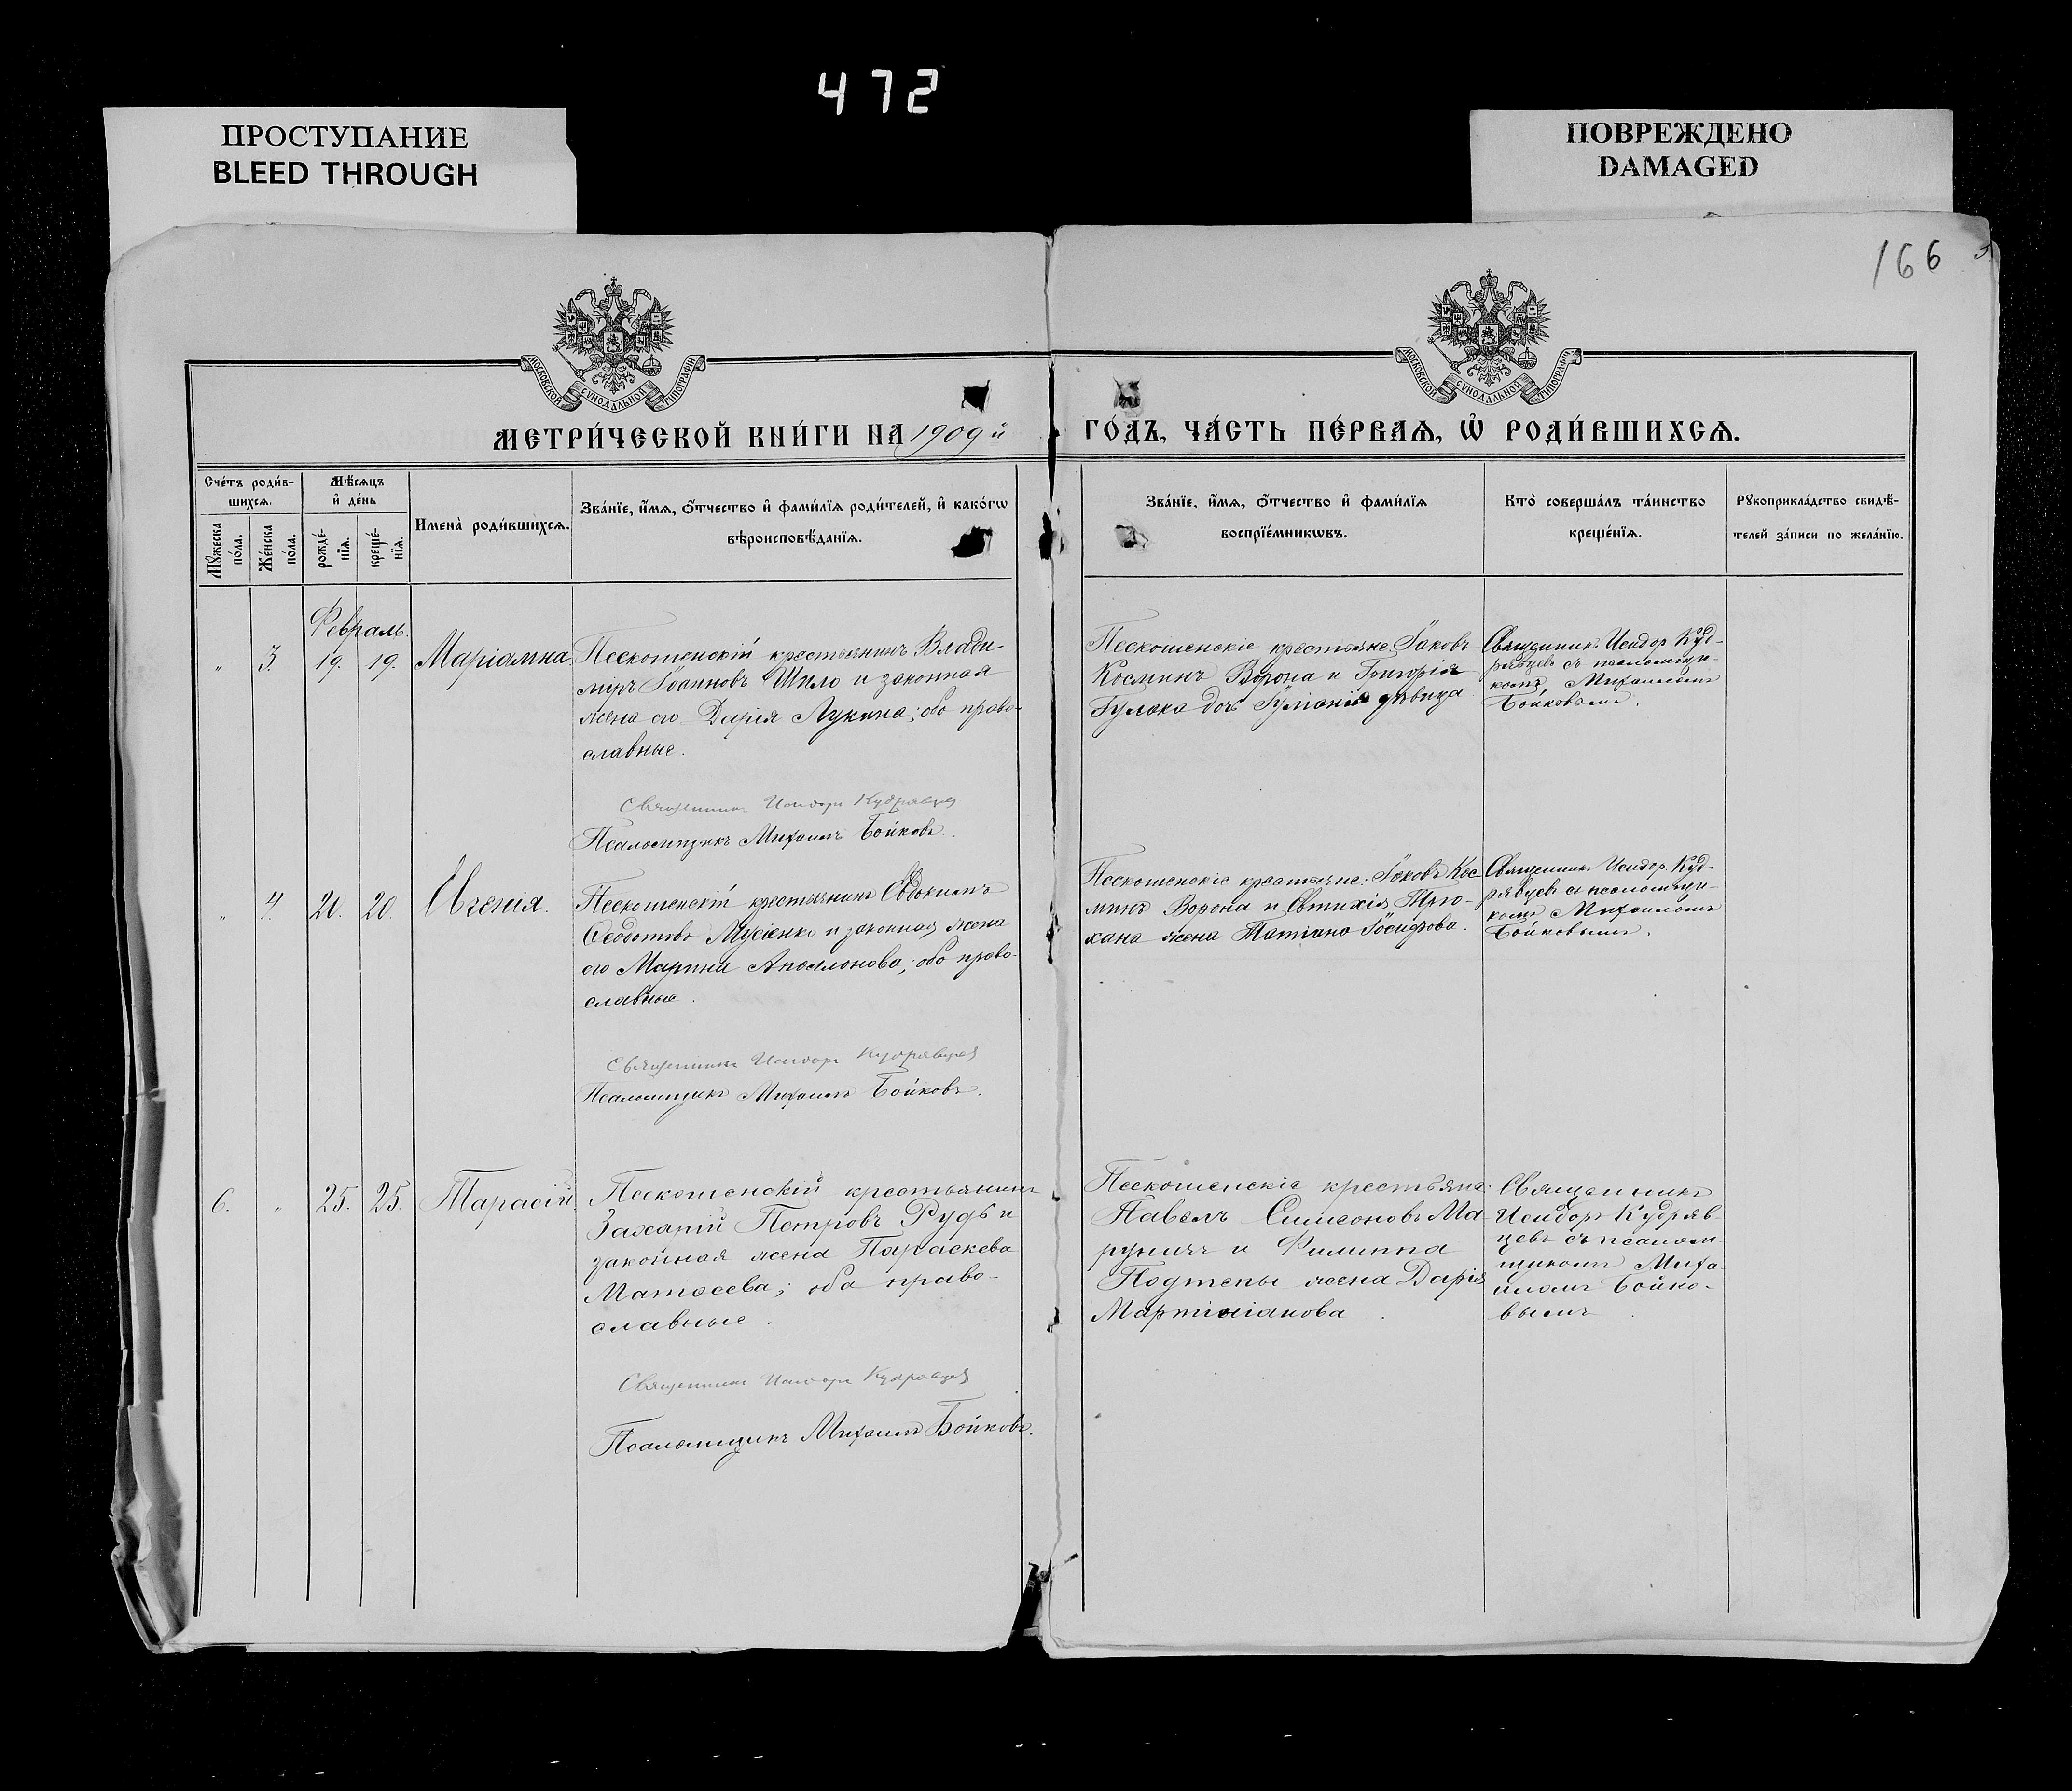 472
ПРОСТУПАНИЕ
BLEED THROUGH
ПОВРЕЖДЕНО
DAMAGED
166
МОСКОВСКОЙ СѴНОДАЛЬНОЙ ТИПОГРАФІИ
МОСКОВСКОЙ СѴНОДАЛЬНОЙ ТИПОГРАФІИ
МЕТРИ́ЧЕСКОЙ КНИ́ГИ НА 1909й ГО́ДЪ, ЧА́СТЬ ПЕ́РВАѦ, Ѡ҆ РОДИ́ВШИХСѦ.
Сче́тъ роди́в-
шихсѧ.
Мѣ́сѧцъ
и҆ де́нь
Мꙋ́жеска
по́ла.
Же́нска
по́ла.
рожде́-
нїѧ.
креще́-
нїѧ.
Имена̀ роди́вшихсѧ.
Зва́нїе, и҆́мѧ, ѻ҆́тчество и҆ фами́лїѧ роди́телей, и҆ како́гѡ
вѣроисповѣ́данїѧ.
Зва́нїе, и҆́мѧ, ѻ҆́тчество и҆ фами́лїѧ
воспрїе́мникѡвъ.
Кто̀ соверша́лъ та́инство
креще́нїѧ.
Рꙋкоприкла́дство свидѣ́-
телей за́писи по жела́нїю.
Февраль.
" 3. 19. 19. Маріамна
Пескошенскій крестьянинъ Влади-
міръ Іоанновъ Шило и законная
жена его Дарія Лукина; оба право-
славные.
Священникъ Исидоръ Кудрявцевъ
Псаломщикъ Михаилъ Бойковъ.
Пескошенскіе крестьяне: Іаковъ
Косминъ Ворона и Григорія
Гулака дочь Іуліанія дѣвица
Священникъ Исидоръ Куд-
рявцевъ съ псаломщи-
комъ Михаиломъ
Бойковымъ.
" 4. 20. 20. Евгенія.
Пескошенскій крестьянинъ Евдокимъ
Федотовъ Мусіенко и законная жена
его Марина Аполлонова; оба право-
славные.
Священникъ Исидоръ Кудрявцевъ
Псаломщикъ Михаилъ Бойковъ.
Пескошенскіе крестьяне: Іаковъ Кос-
минъ Ворона и Евтихія Трю-
хана жена Татіана Іосифова.
Священникъ Исидоръ Куд-
рявцевъ съ псаломщи-
комъ Михаиломъ
Бойковымъ.
6. " 25. 25. Тарасій.
Пескошенскій крестьянинъ
Захарій Петровъ Рудь и
законная жена Параскева
Матѳеева; оба право-
славные.
Священникъ Исидоръ Кудрявцевъ
Псаломщикъ Михаилъ Бойковъ.
Пескошенскіе крестьяне:
Павелъ Симеоновъ Ма-
руничъ и Филиппа
Подтепы жена Дарія
Мартиніанова.
Священникъ
Исидоръ Кудряв-
цевъ съ псалом-
щикомъ Миха-
иломъ Бойко-
вымъ.